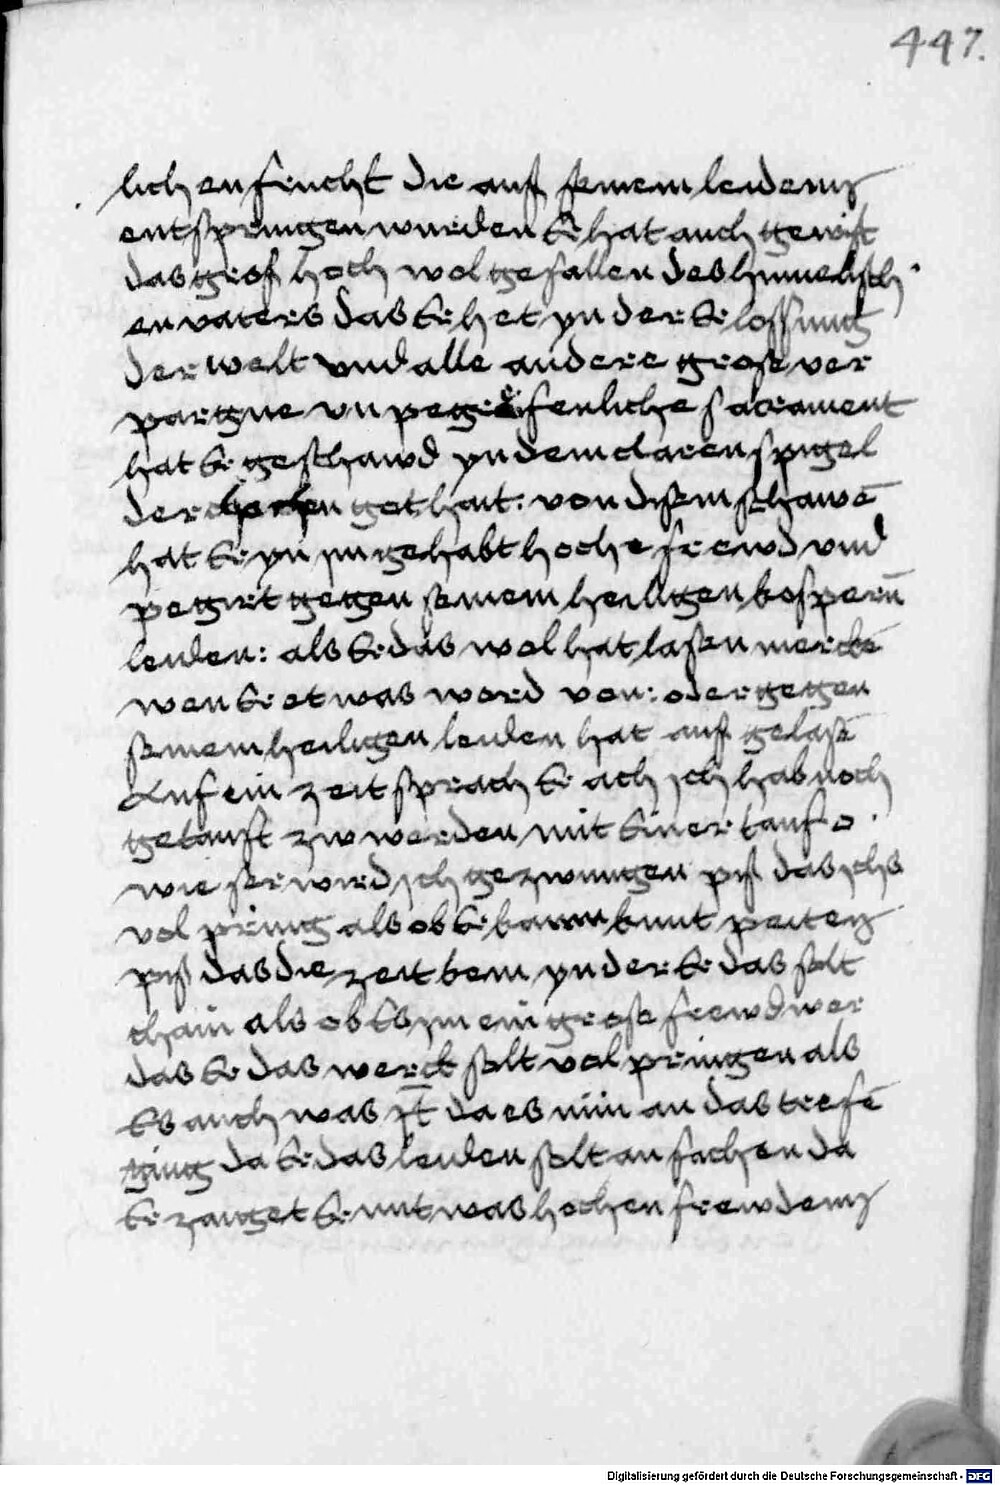 447.
lichen frucht die auß seinem leidenn
entspringen wurden Er hat auch gewist
das groß hoch wolgefallen des himelisch
en vaters das Er het yn der Erlossung
der welt vnd alle andere grose ver
porgne vnpegreifenliche sacrament
hat Er geschawd yn dem claren spigel
der gothait. von disem schawē
hat Er yn im gehabt hoche frewd vnd
pegirt gegen seinem heiligen kosperñ
leiden: als Er das wol hat lasen merckē
wen Er etwas word von: oder gegen
seinem heiligen leiden hat auß gelasē
Auf ein zeit sprach Er ach ich hab noch
getauft zw werden mit Einer tauf o
wie ser wird ich gezwungen piß das ichs
volpring als ob Er kaum kunt peiten
piß das die zeit kem yn der Er das solt
thain als ob Es im ein grose frewd wer
das Er das werck solt volpringen als
Es auch was it̄ da es nun an das trefē
ging da Er das leiden solt anfachen da
Er zaiget Er mit was hochen frewdenn
Digitalisierung gefördert durch die Deutsche Forschungsgemeinschaft - DFG